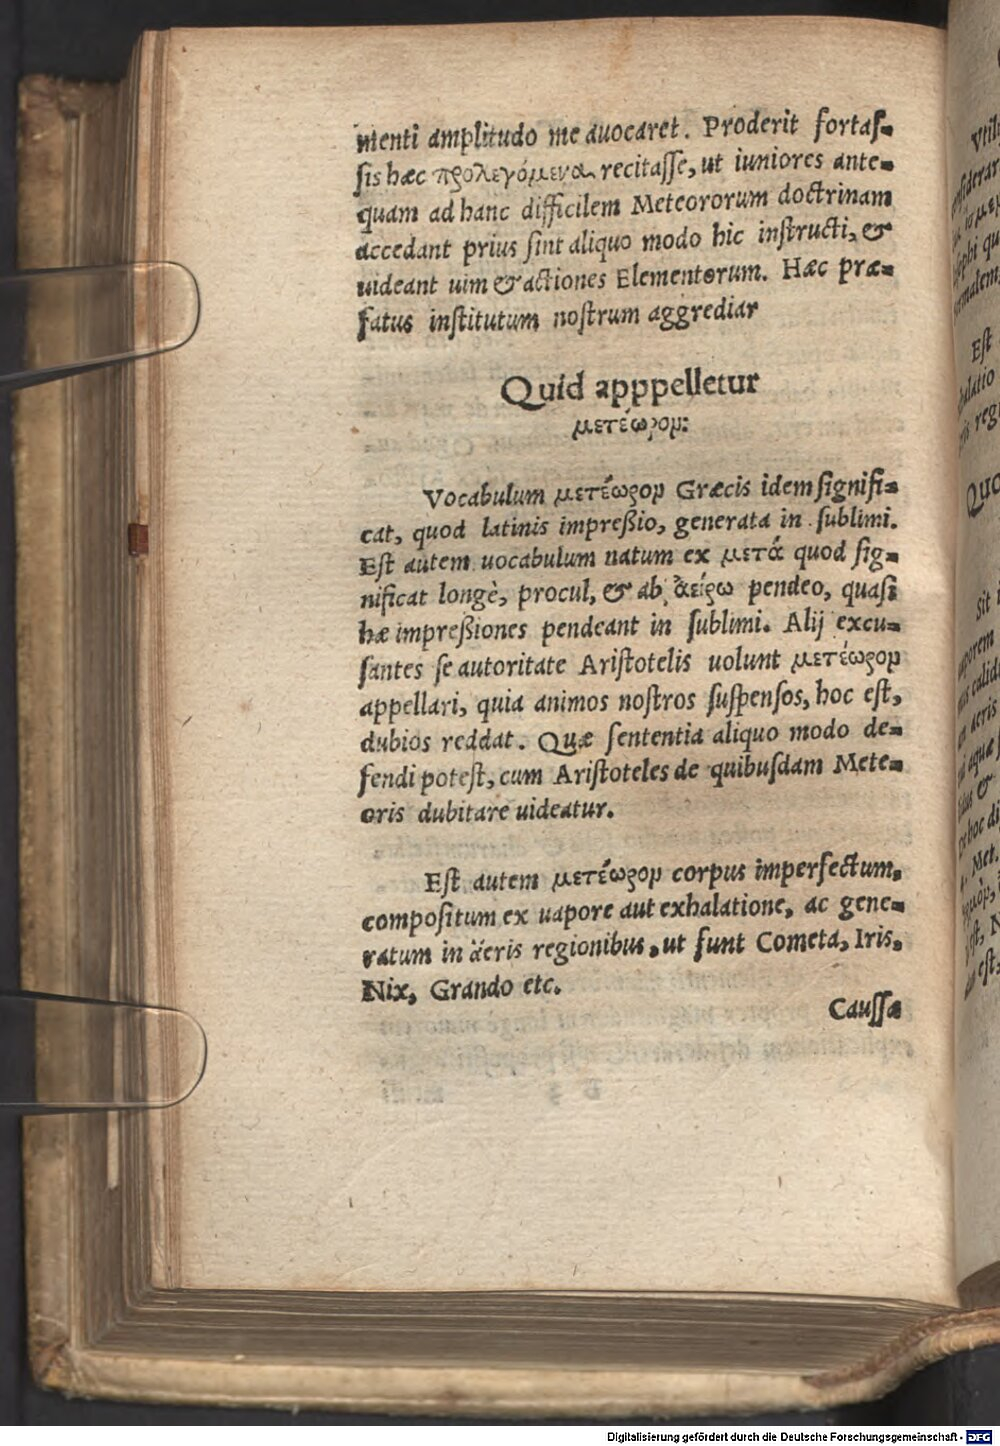 menti amplitudo me auocaret. Proderit fortas⸗
sis hæc προλεγόμενα recitasse, ut iuniores ante⸗
quam ad hanc difficilem Meteororum doctrinam
accedant prius sint aliquo modo hic instructi, &
uideant uim & actiones Elementorum. Hæc præ⸗
fatus institutum nostrum aggrediar
Quid apppelletur
μετέωρομ:
Vocabulum μετέωρομ Græcis idem signifi⸗
cat, quod latinis impreßio, generata in sublimi.
Est autem uocabulum natum ex μετά quod sig⸗
nificat longè, procul, & ab ἀείρω pendeo, quasi
hæ impreßiones pendeant in sublimi. Alij excu⸗
santes se autoritate Aristotelis uolunt μετέωρομ
appellari, quia animos nostros suspensos, hoc est,
dubios reddat. Quæ sententia aliquo modo de⸗
fendi potest, cum Aristoteles de quibusdam Mete⸗
oris dubitare uideatur.
Est autem μετέωρομ corpus imperfectum,
compositum ex uapore aut exhalatione, ac gene⸗
ratum in äeris regionibus, ut sunt Cometa, Iris,
Nix, Grando etc.
Caussæ
Digitalisierung gefördert durch die Deutsche Forschungsgemeinschaft - DFG